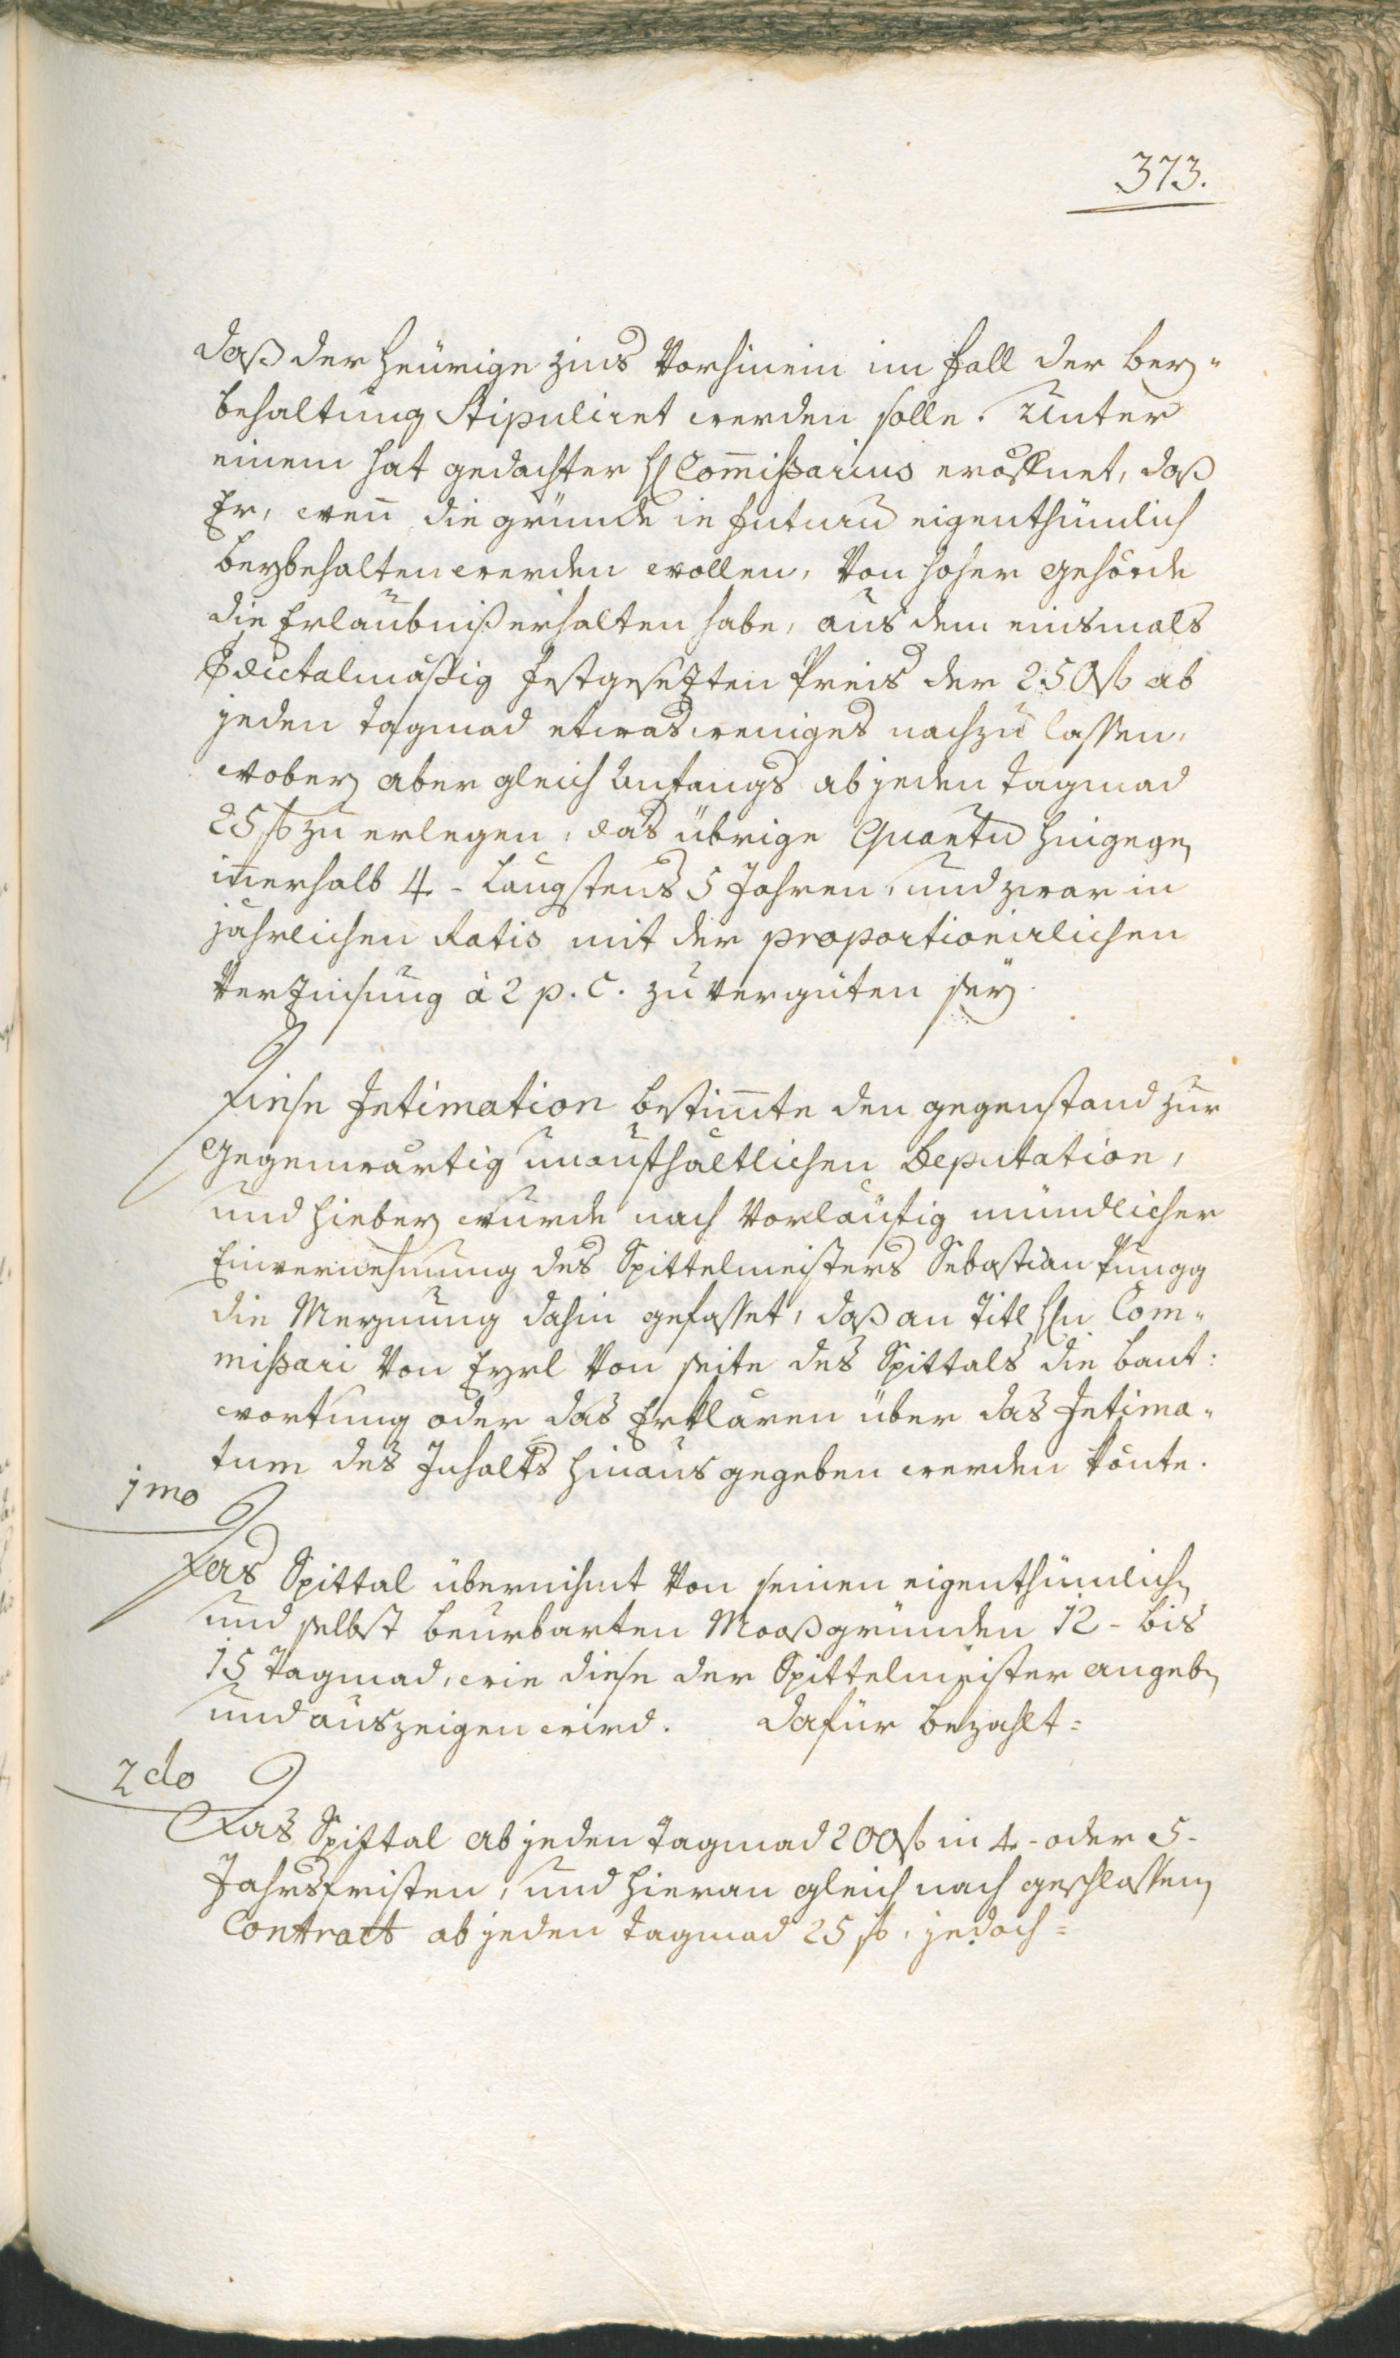 373.
daß der heürige Zins Vorhinein im fall der bey-
behaltung Stipuliret werden solle. Unter
einem hat gedachter H Com̄ißarius eröffnet, daß
Er, wen̄ die gründe in futurū eigenthümlich
beybehalten werden wollen, Von hoher gehörde
die Erlaubniß erhalten habe, aus dem einsmals
Edictalmäßig festgesezten Preis der 250 f ab
jeden tagmad etwas weniges nachzulassen,
wobey aber gleich Anfangs ab jeden tagmad
25 f zu erlegen, das übrige Quantū hingegen
innerhalb 4 - längstens 5 Jahren, und zwar in
jährlichen Ratis mit der proportionirlichen
Verzinsung à 2 p. C. zu vergüten sey.
Diese Intimation bestim̄te den gegenstand zur
Gegenwärtig unaufhältlichen Deputation,
und hiebey wurde nach Vorläufig mündlicher
Einvernehmung des Spittelmeisters Sebastian Pungg
die Meynung dahin gefasset, daß an Titl Hn Com-
mißari Von Eyrl Von seite des Spittals die beant:
wortung oder das Erklären über das Intima-
tum des Inhalts hinausgegeben werden könte.
1mo
Das Spittal übernihmt Von seinen eigenthümlichen
und selbst beurbarten Moosgründen 12 - bis
15 tagmad, wie diese der Spittelmeister angeben
und auszeigen wird. dafür bezahlt=
2do
Das Spittal ab jeden tagmad 200 f in 4 - oder 5-
Jahrsfristen, und hieran gleich nach geschlossenen
Contract ab jeden tagmad 25 f, jedoch=